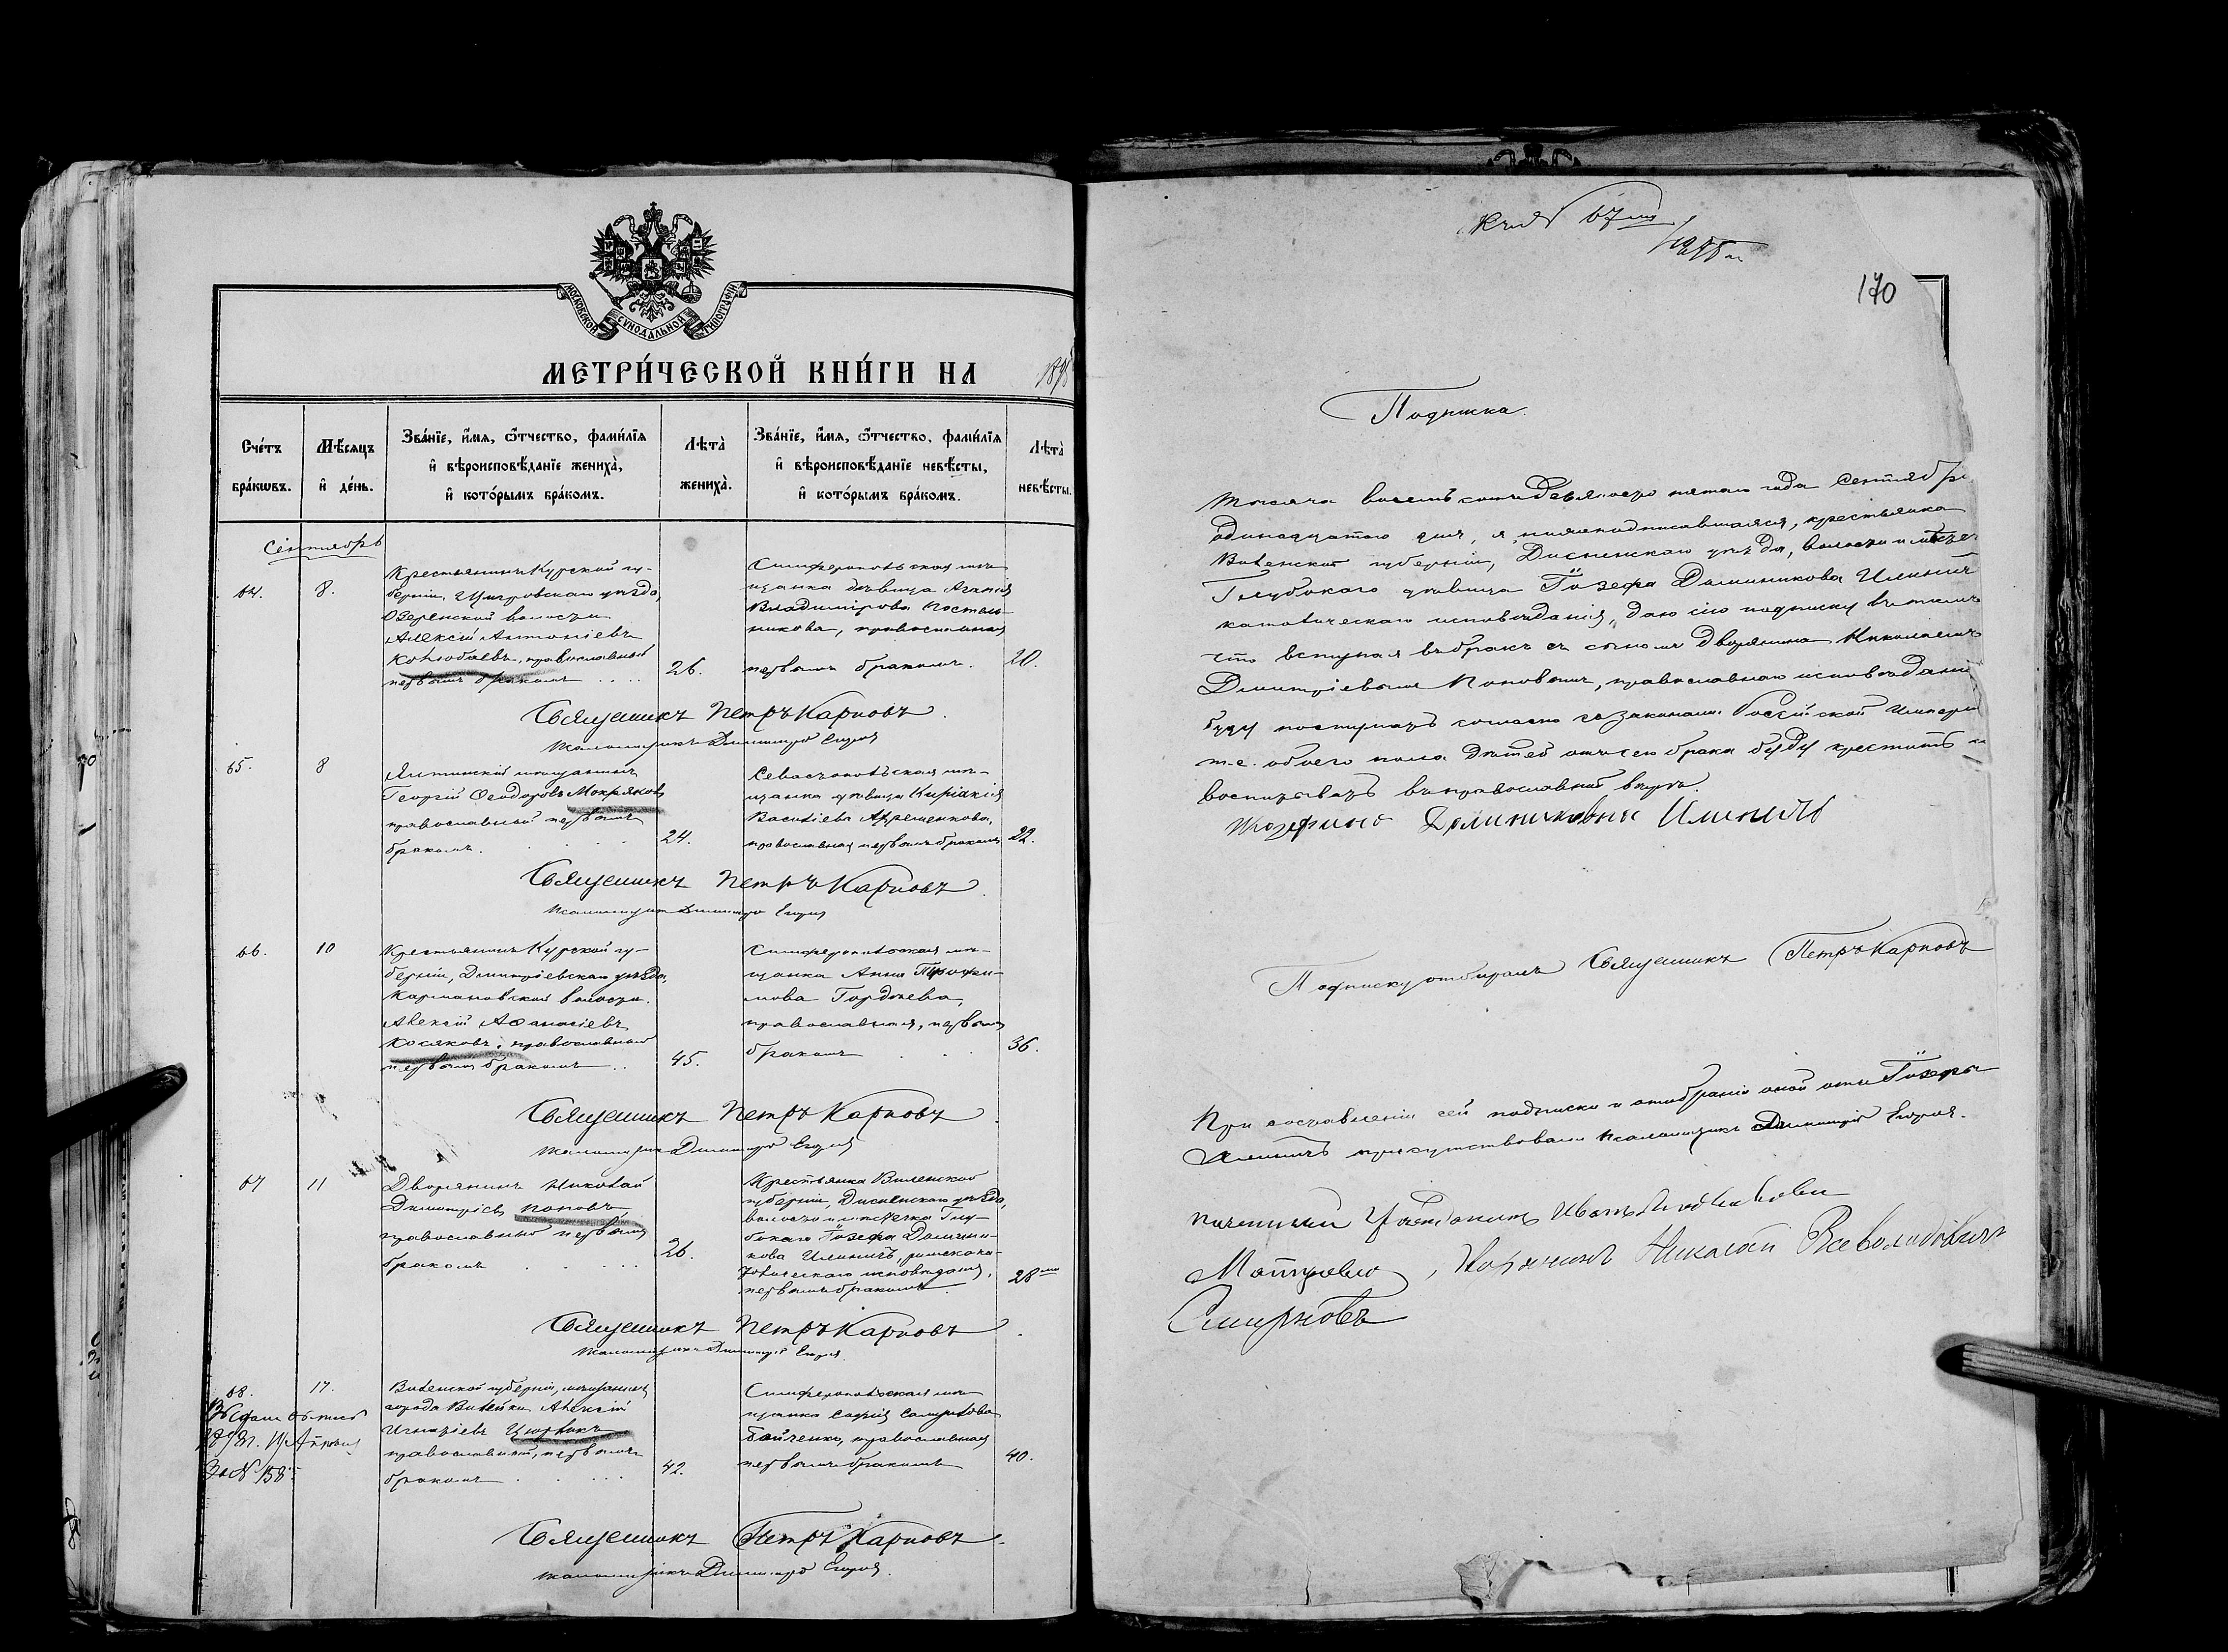 МОСКОВСКОЙ СѴНОДАЛЬНОЙ ТИПОГРАФІИ
МЕТРИ́ЧЕСКОЙ КНИ́ГИ НА 1895
Сче́тъ бра́кѡвъ.
Мѣ́сяцъ и҆ де́нь.
Зва́нїе, и҆́мѧ, ѻ҆́тчество, фами́лїѧ
и҆ вѣроисповѣ́данїе жениха̀,
и҆ кото́рымъ бра́комъ.
Лѣ́та̀ жениха̀.
Зва́нїе, и҆́мѧ, ѻ҆́тчество, фами́лїѧ
и҆ вѣроисповѣ́данїе невѣ́сты,
и҆ кото́рымъ бра́комъ.
Лѣ́та̀ невѣ́сты.
Сентябрь
64.
8.
Крестьянинъ Курской гу-
берніи, Щигровскаго уѣзда,
Озеренской волости
Алексій Антоніевъ
православный
первымъ бракомъ
26.
Симферопольская мѣ-
щанка дѣвица Агапія
Владимірова Постель-
никова, православная
первымъ бракомъ.
20.
Священникъ Петръ Карповъ
Псаломщикъ Димитрій
65.
8
Ялтинскій мѣщанинъ
Георгій Ѳеодоровъ Мокряковъ
православный первымъ
бракомъ.
24.
Севастопольская мѣ-
щанка дѣвица Киріакія
Василіева
православная первымъ бракомъ
22.
Священникъ Петръ Карповъ
Псаломщикъ Димитрій
66.
10
Крестьянинъ Курской гу-
берніи, Димитріевскаго уѣзда,
Кармановской волости
Алексій Аѳанасіевъ
Косяковъ, православный
первымъ бракомъ
45.
Симферопольская мѣ-
щанка Анна Трофи-
мова Гордѣева,
православная, первымъ
бракомъ
36.
Священникъ Петръ Карповъ
Псаломщикъ Димитрій
67
11
Дворянинъ Николай
Димитріевъ Поповъ
православный первымъ
бракомъ
26.
Крестьянка Виленской
губерніи, Дисненскаго уѣзда,
волости и мѣстечка Глу-
бокаго Іозефа Домини-
кова Илиничъ, римско-ка-
толическаго исповѣданія,
первымъ бракомъ
28
Священникъ Петръ Карповъ
Псаломщикъ Димитрій
68.
17.
Виленской губерніи, мѣщанинъ
города Вилейки Алексій
Игнатіевъ
православный, первымъ
бракомъ
42.
Симферопольская мѣ-
щанка Софія
православная
первымъ бракомъ
40.
За № 158
Священникъ Петръ Карповъ
Псаломщикъ Димитрій
67
1895
170
Подписка.
Тысяча восемьсотъ девяносто пятаго года Сентября
одинадцатаго дня, я, нижеподписавшаяся, крестьянка
Виленской губерніи, Дисненскаго уѣзда, волости и мѣстеч
Глубокаго дѣвица Іозефа Доминикова Илиничъ
католическаго исповѣданія, даю сію подписку въ томъ
что вступая въ бракъ съ сыномъ дворянина Николаемъ
Димитріевымъ Поповымъ, православнаго исповѣдані
буду поступать согласно съ законами Россійской Имперіи
т.е. обоего пола дѣтей отъ сего брака буду крестить и
воспитывать въ православной вѣрѣ.
Доминиковна Илиничъ
Подписку отбиралъ Священникъ Петръ Карповъ
При составленіи сей подписки и отобраніи оной отъ Іозефы
Илиничъ присутствовали Псаломщикъ Димитрій
Иванъ
Николай Всеволодовичъ
Смирновъ